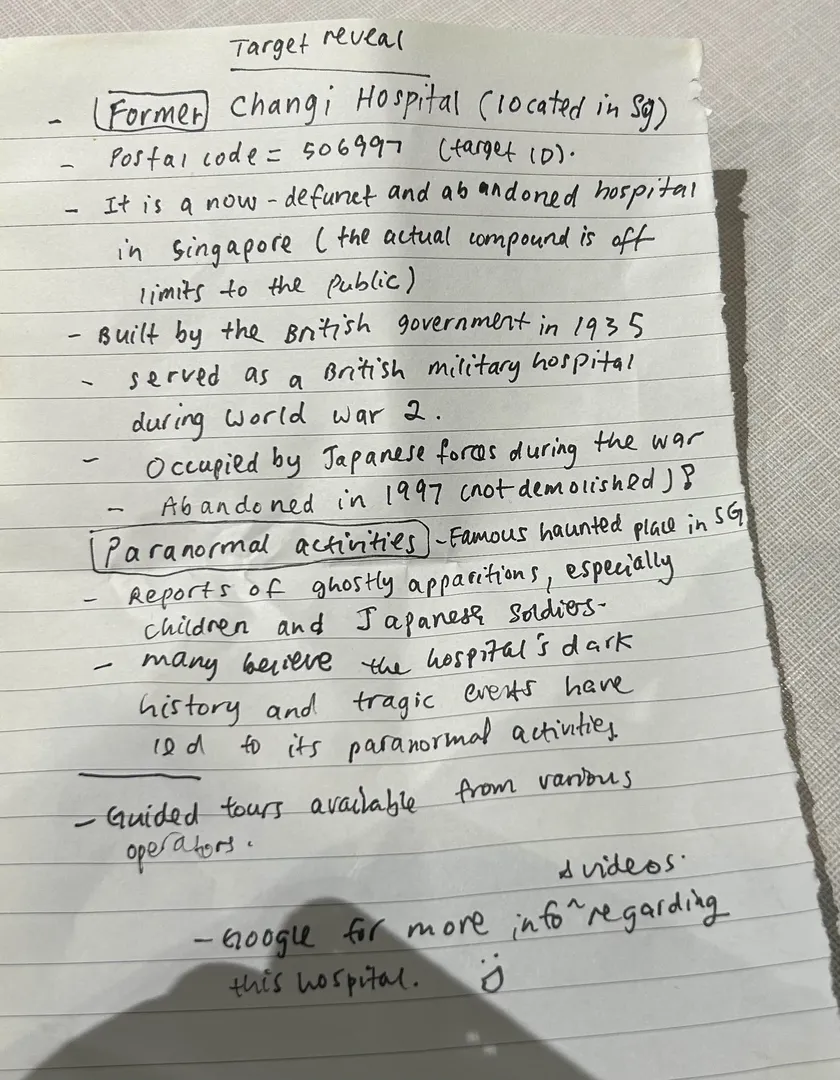 Target reveal
- Former Changi Hospital (located in Sg)
- Postal code = 506997 (target ID).
- It is a now-defunct and abandoned hospital
in Singapore (the actual compound is off
limits to the public)
- Built by the British government in 1935
- served as a British military hospital
during World War 2.
- Occupied by Japanese forces during the war
- Abandoned in 1997 (not demolished)?
Paranormal activities - Famous haunted place in SG
- Reports of ghostly apparitions, especially
children and Japanese soldiers.
- many believe the hospital's dark
history and tragic events have
led to its paranormal activities
- Guided tours available from various
operators.
& videos.
- Google for more info ^ regarding
this hospital. :D